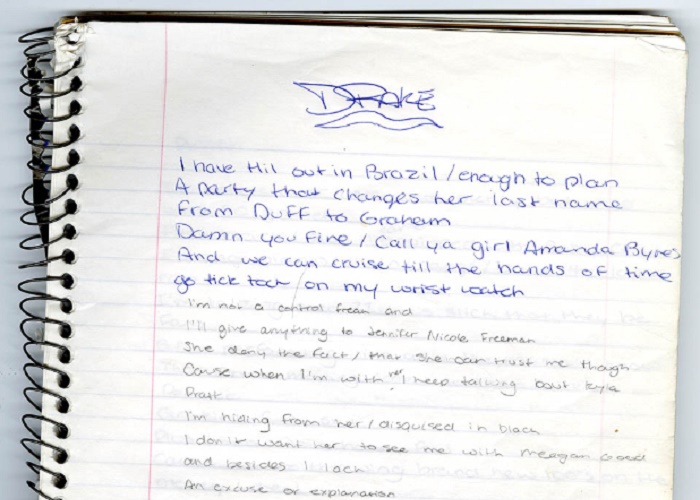 DRAKE
I have Hil out in Brazil / enough to plan
A party that changes her last name
From Duff to Graham
Damn you fine / Call ya girl Amanda Bynes
And we can cruise till the hands of time
go tick tock on my wrist watch
I'm not a control freak and
I'll give anything to Jennifer Nicole Freeman
She deny the fact / that she can trust me though
Cause when I'm with her I keep talking bout Kyla
Pratt
I'm hiding from her / disguised in black
I don't want her to see me with Meagan Good
and besides I lack
An excuse or explanation